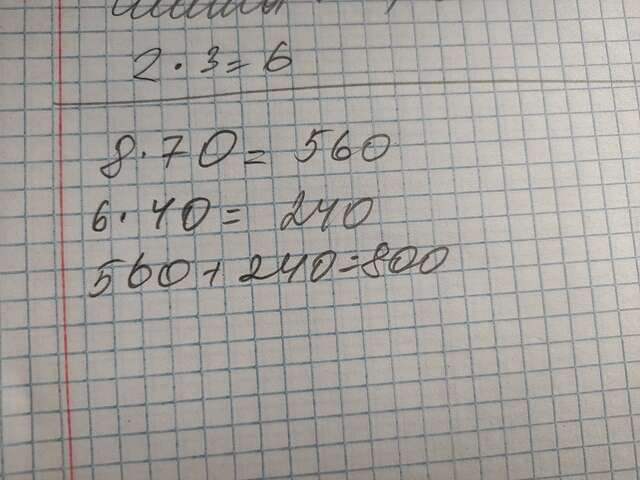 2 · 3 = 6
8 · 70 = 560
6 · 40 = 240
560 + 240 = 800